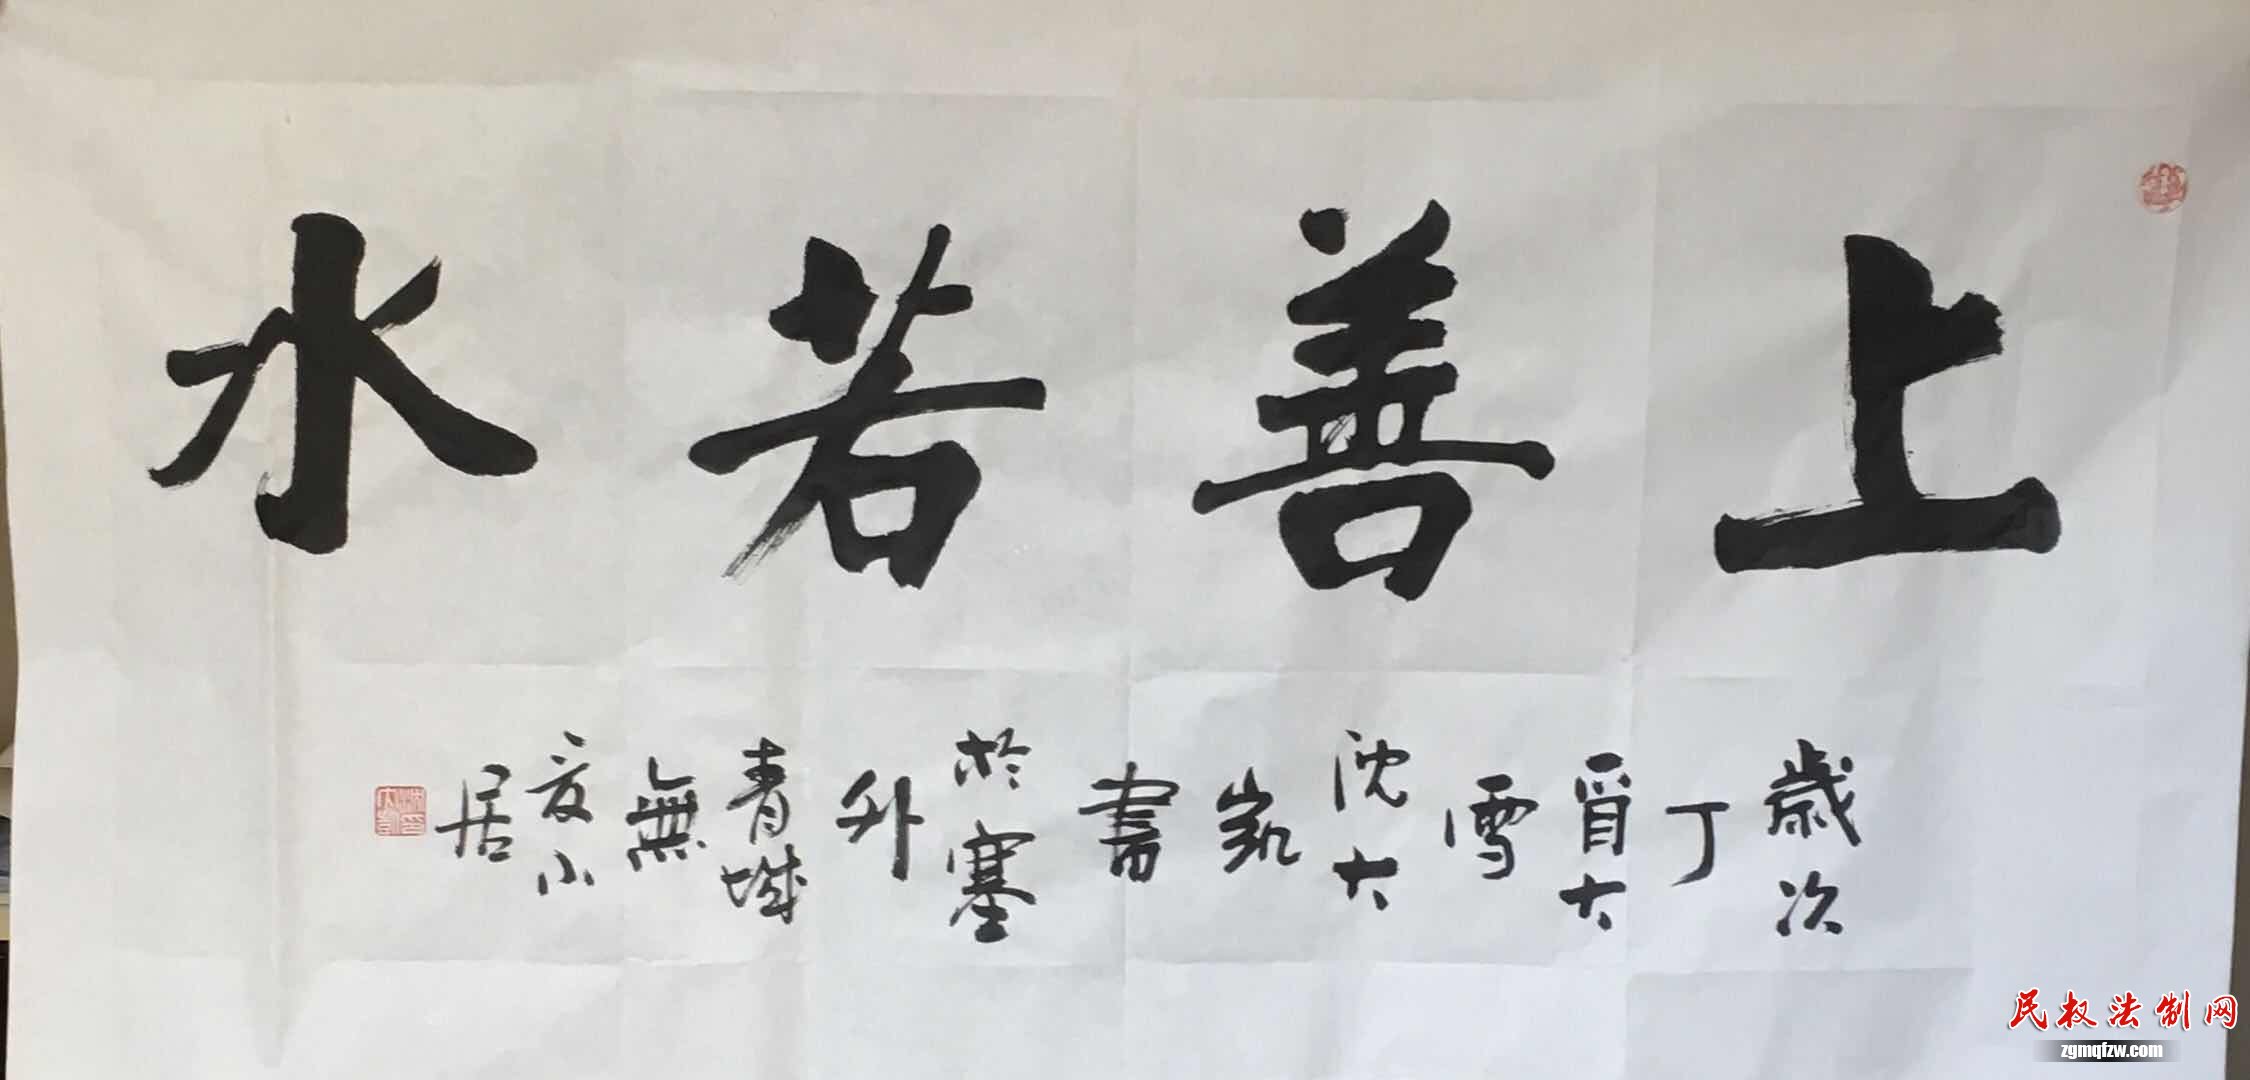 上善若水
歲次
丁
酉大
雪
沈大
凱
書
於塞
外
青城
無
小
居
民权法制网
zgmqfzw.com